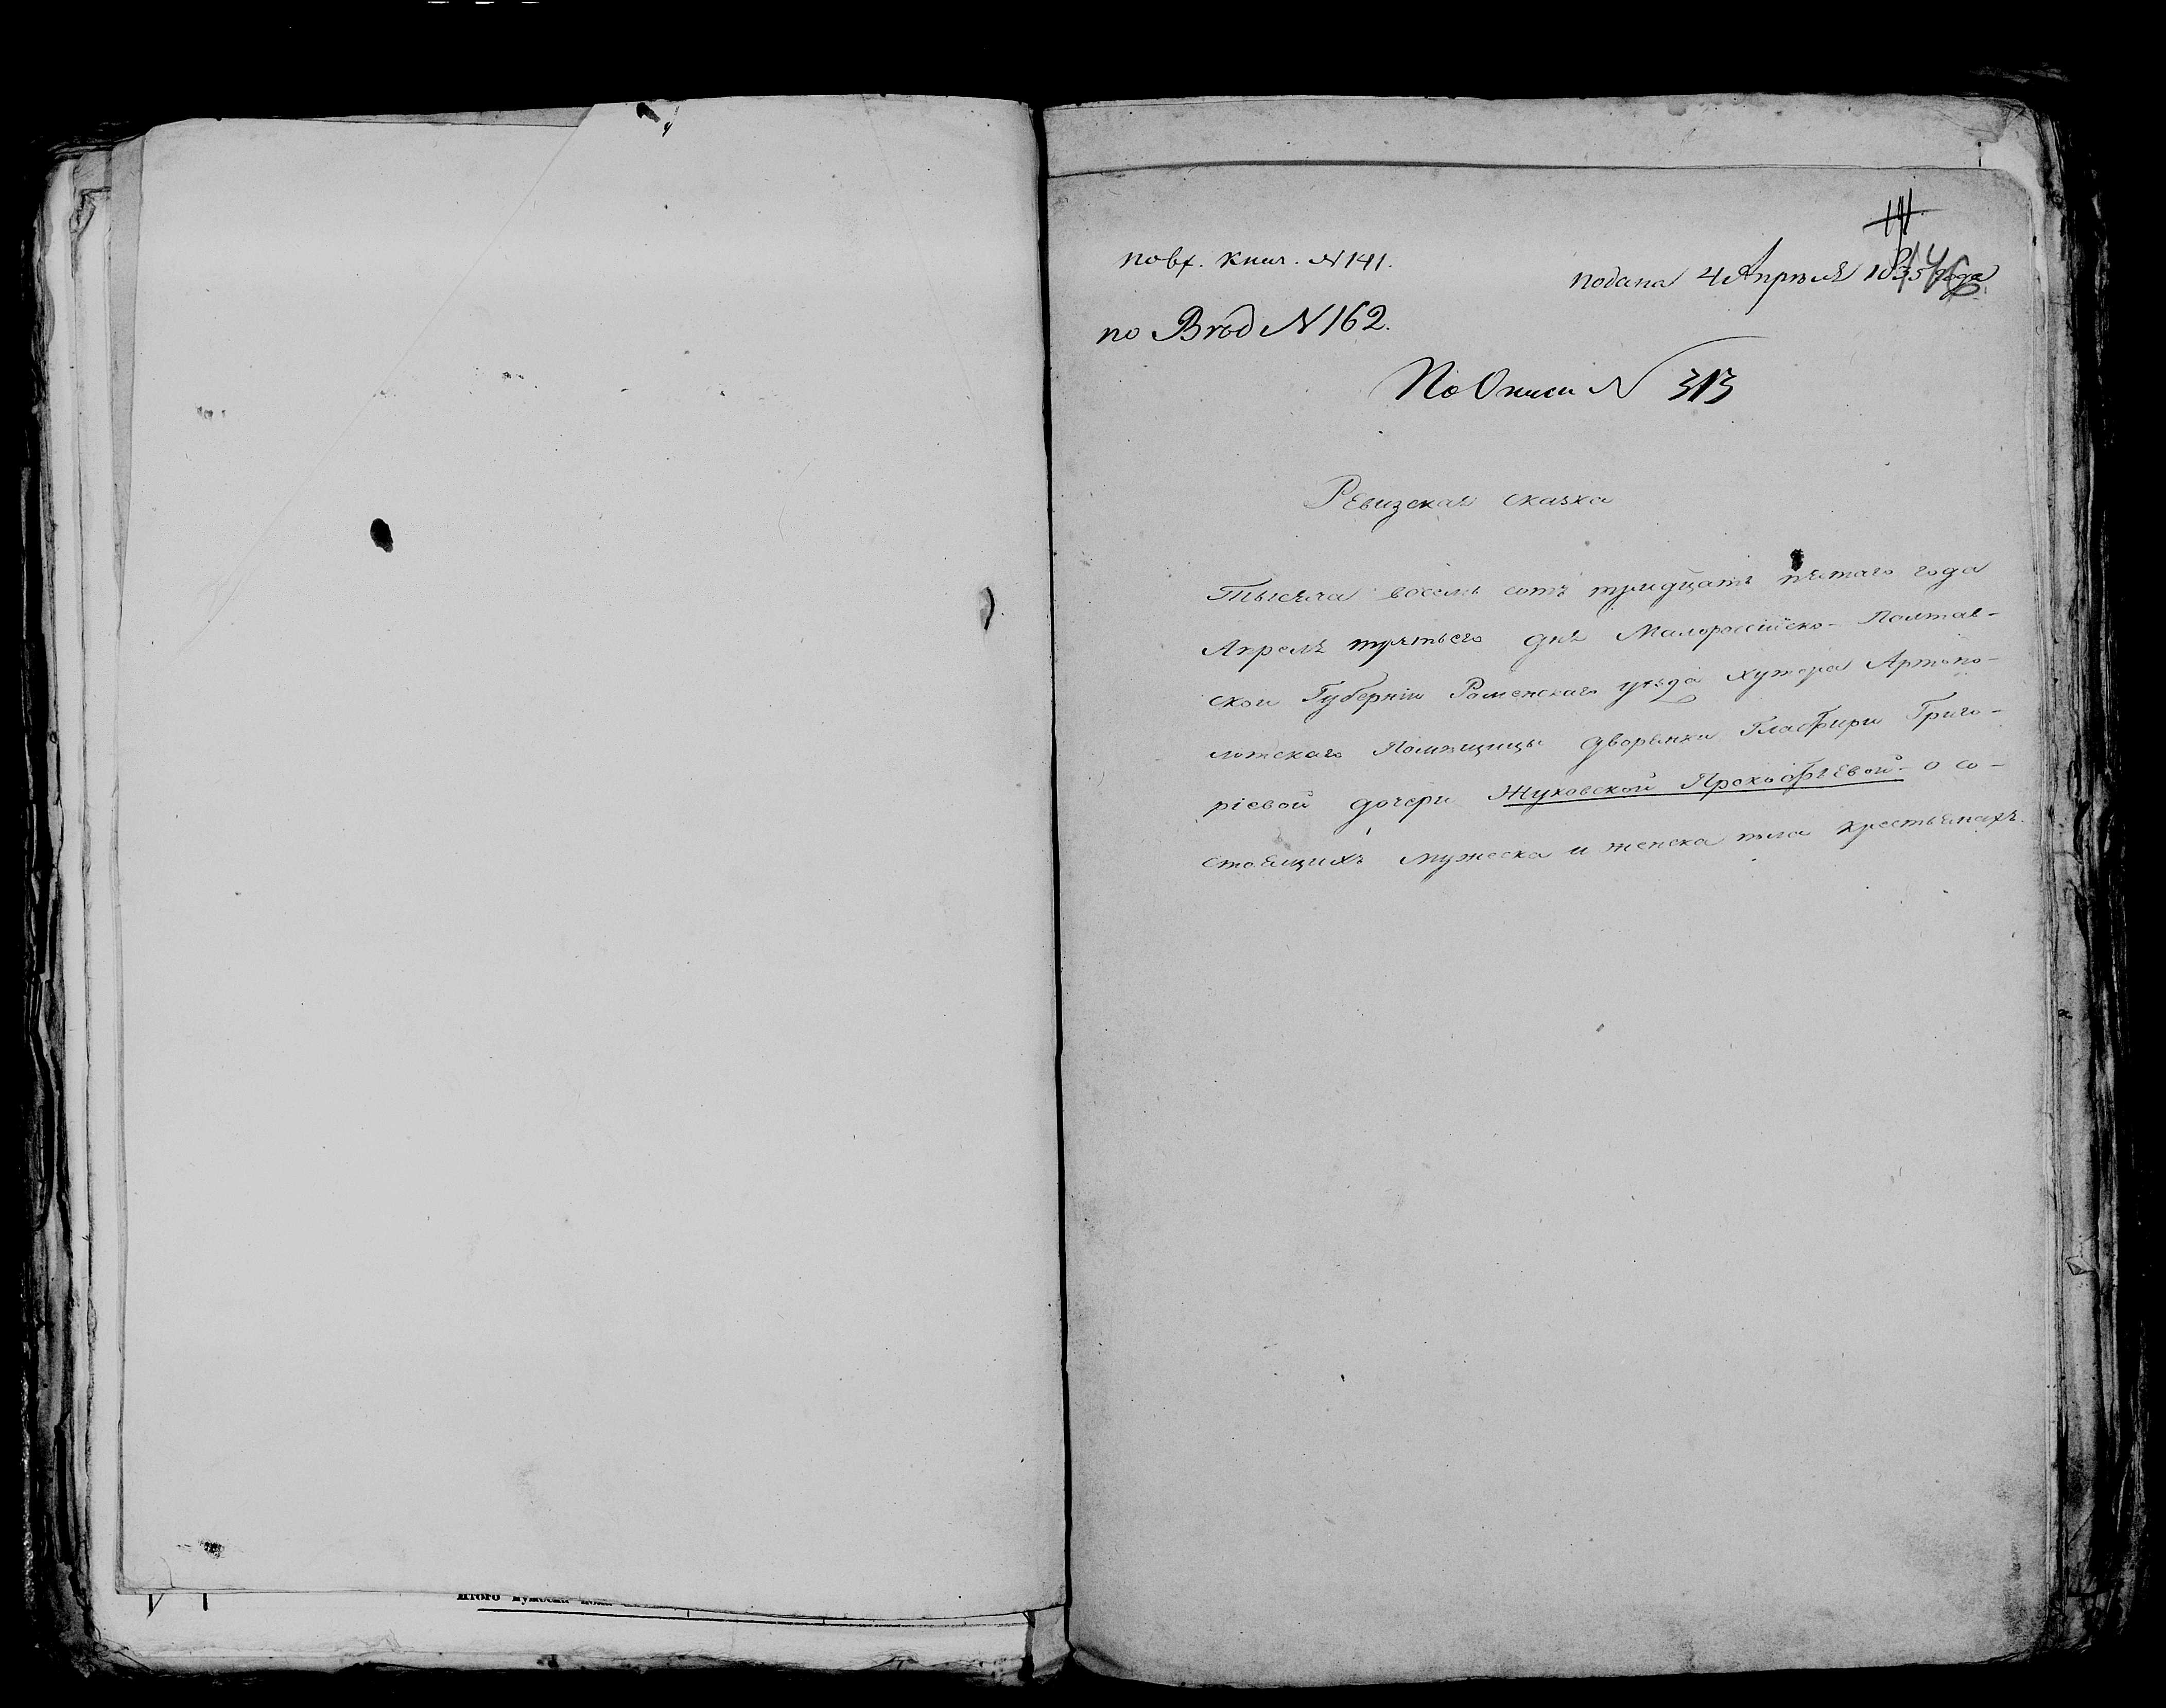 по вх. книг. N 141.
подана 4 Апреля 1835 года
146
по Вход N 162.
По Описи N 313
Ревизская сказка
Тысяча восемь сотъ тридцать пятаго года
Апреля третьего дня Малороссійско-Полтав-
ской Губерніи Роменскаго уѣзда Хутора Артопо-
лотскаго Помѣщицы дворянки Глафири Григо-
ріевой дочери Жуковской Прокофьевой о со-
стоящихъ мужеска и женска пола крестьянахъ.
итого мужеска пола